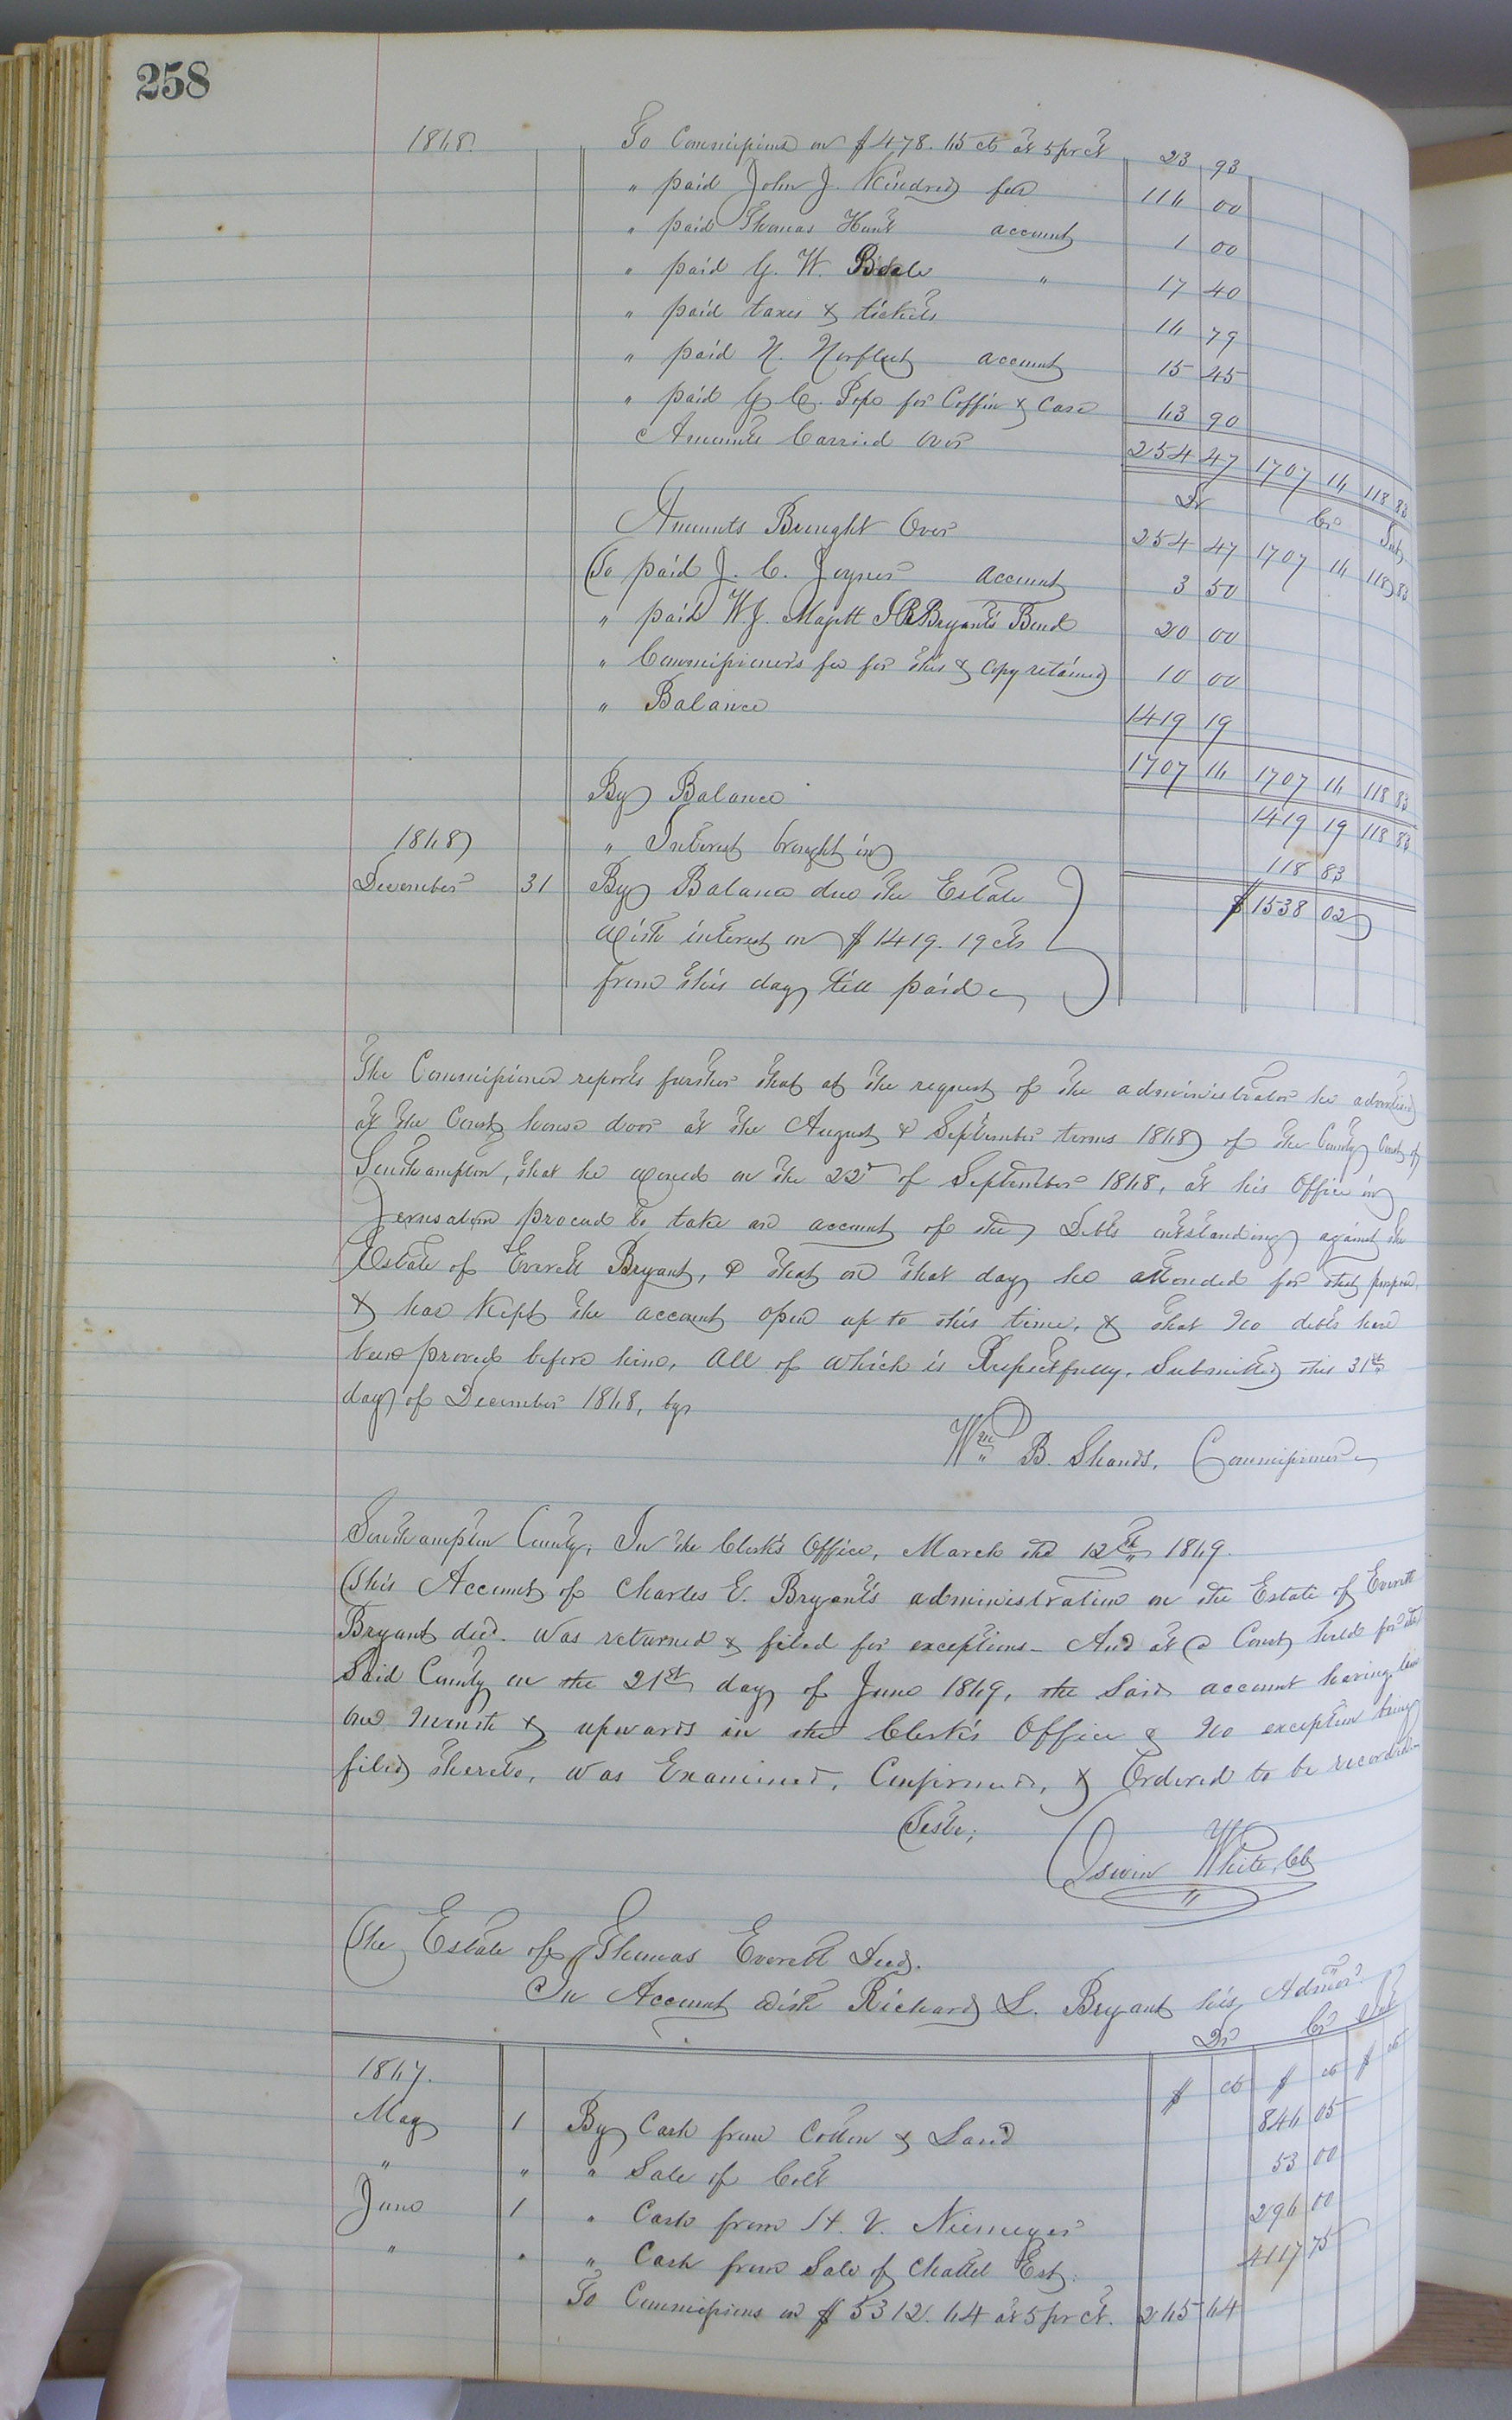 258
1868. To Commissions on $478.65 cts at 5 pr ct 23 93
" paid John J. Kindred fees 116 00
" paid Thomas Hunt account 1 00
" paid G. W. Beale " 17 40
" paid taxes & tickets 16 79
" paid N. Norfleet account 15 45
" paid G. C. Pope for Coffin & Case 63 90
Amounts Carried over 254 47 1707 16 118 83
Dr Cr Int
Amounts Brought Over 254 47 1707 16 118 83
To paid J. C. Joyner account 3 50
" paid W. J. Majett J R Bryant's Bond 20 00
" Commissioner's fee for this & copy retained 10 00
" Balance 1419 19
1707 16 1707 16 118 83
By Balance 1419 19 118 83
1868 " Interest brought in 118 83
December 31 By Balance due the Estate $1538 02
with interest on $1419.19 cts
from this day till paid
The Commissioner reports further that at the request of the administrator he advertised
at the Court house door at the August & September terms 1868 of the County Court of
Southampton, that he would on the 22d of September 1868, at his Office in
Jerusalem proceed to take an account of the Debts outstanding against the
Estate of Everett Bryant, & that on that day he attended for that purpose,
& has kept the account open up to this time, & that no debts have
been proved before him, All of which is Respectfully, Submitted this 31st
day of December 1868, by
Wm B. Shands, Commissioner
Southampton County; In the Clerk's Office, March the 12th 1869.
This Account of Charles E. Bryant's administration on the Estate of Everett
Bryant decd. was returned & filed for exceptions - And at a Court held for the
Said County on the 21st day of June 1869, the Said account having been
one month & upwards in the Clerk's Office & no exception being
filed thereto, was Examined, Confirmed, & Ordered to be recorded
Teste;
Oswin White, CC
The Estate of Thomas Everett Decd.
In Account with Richard L. Bryant his Admor.
Dr Cr Int
1867. $ cts $ cts $ cts
May 1 By Cash from Cotton & Land 846 05
" " " Sale of Colt 53 00
June 1 " Cash from H. V. Niemeyer 296 00
" " " Cash from Sale of Chattel Est. 4117 75
To Commissions on $5312.64 at 5 pr ct. 265 64